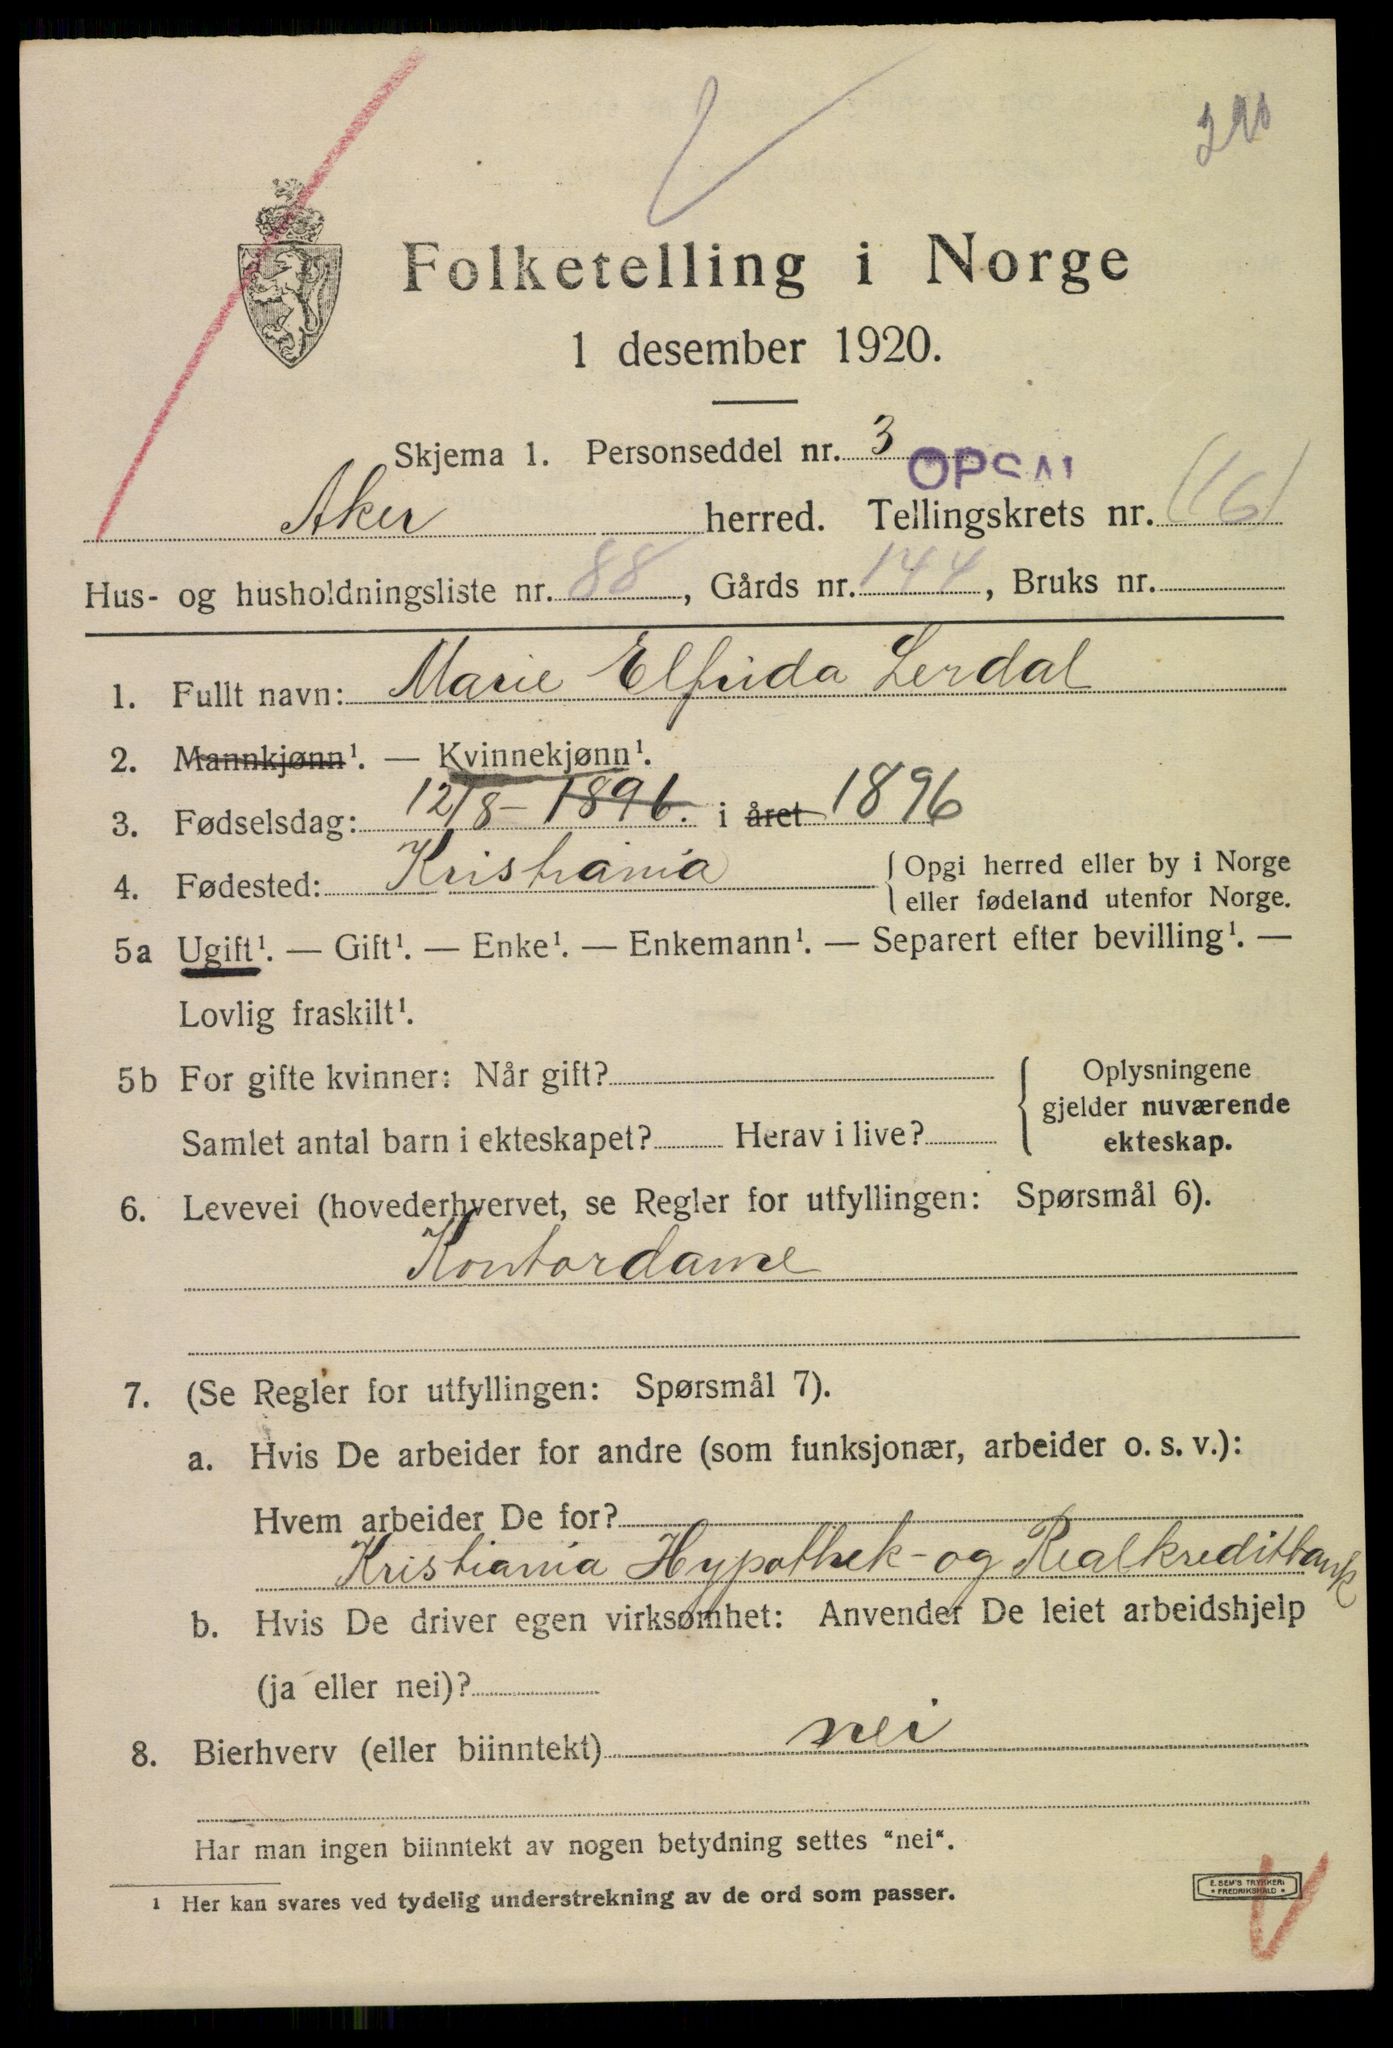 290
Folketelling i Norge
1 desember 1920.
Skjema 1. Personseddel nr. 3
OPSAL
Aker herred. Tellingskrets nr. (16)
Hus- og husholdningsliste nr. 88, Gårds nr. 144, Bruks nr.
1. Fullt navn: Marie Elfrida Lerdal
2. Mannkjønn¹. — Kvinnekjønn¹.
3. Fødselsdag: 12/8 - 1896. i året 1896
4. Fødested: Kristiania { Opgi herred eller by i Norge
eller fødeland utenfor Norge.
5a Ugift¹. — Gift¹. — Enke¹. — Enkemann¹. — Separert efter bevilling¹. —
Lovlig fraskilt¹.
5b For gifte kvinner: Når gift?
Samlet antal barn i ekteskapet? Herav i live?
Oplysningene
gjelder nuværende
ekteskap.
6. Levevei (hovederhvervet, se Regler for utfyllingen: Spørsmål 6).
Kontordame
7. (Se Regler for utfyllingen: Spørsmål 7).
a. Hvis De arbeider for andre (som funksjonær, arbeider o. s. v.):
Hvem arbeider De for?
Kristiania Hypothek- og Realkreditbank
b. Hvis De driver egen virksomhet: Anvender De leiet arbeidshjelp
(ja eller nei)?
8. Bierhverv (eller biinntekt) nei
Har man ingen biinntekt av nogen betydning settes "nei".
1 Her kan svares ved tydelig understrekning av de ord som passer.
E. SEM'S TRYKKERI
* FREDRIKSHALD *